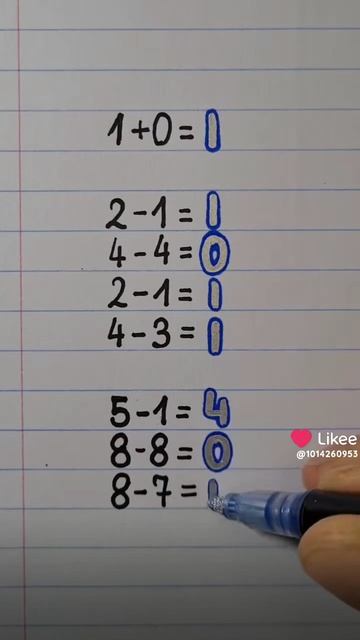 1+0=1
2-1=1
4-4=0
2-1=1
4-3=1
5-1=4
8-8=0
8-7=
Likee
@1014260953